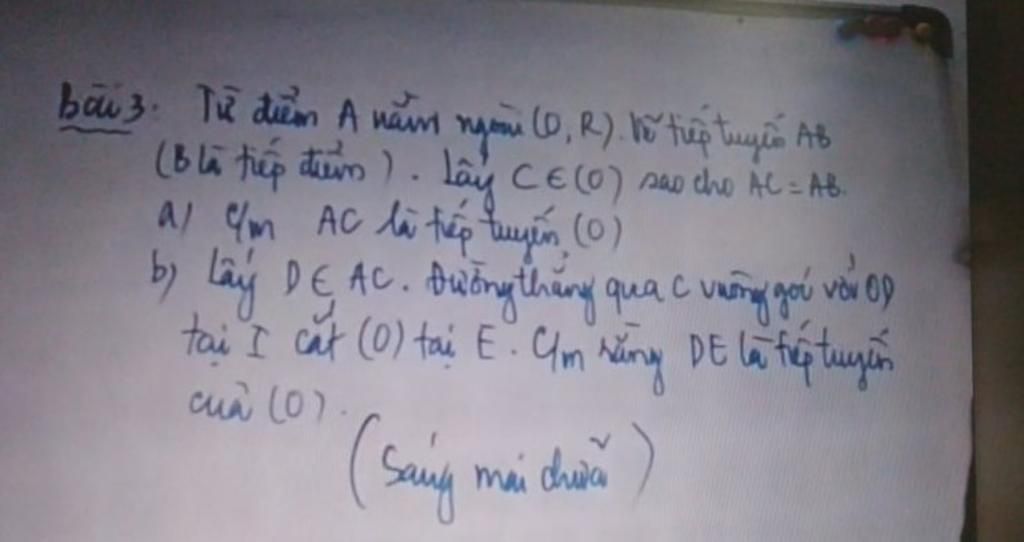 bài 3. Từ điểm A nằm ngoài (O, R). Vẽ tiếp tuyến AB
(B là tiếp điểm). Lấy C ∈ (O) sao cho AC = AB.
a) c/m AC là tiếp tuyến (O)
b) Lấy D ∈ AC. Đường thẳng qua C vuông gói với OD
tại I cắt (O) tại E. C/m rằng DE là tiếp tuyến
của (O).
(Sáng mai chữa)